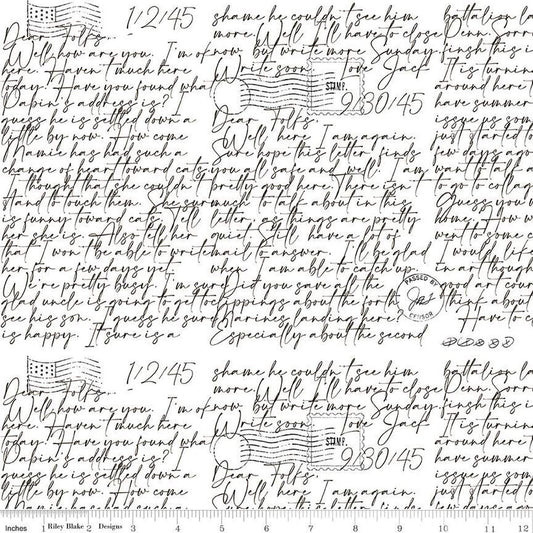 1/2/45
Dear Folks..
Well how are you. I'm o
here. Haven't much here
today. Have you found wha
Papin's address is?
guess he is settled down a
little by now. How come
Mamie has had such a
change of heart toward cats
I thought that she couldn't
stand to touch them. She sur
is funny toward cats. Tell
her she is. Also tell her
that I won't be able to write
her for a few days yet.
We're pretty busy. I'm sure
glad uncle is going to get to
see his son. I guess he sure
is happy. It sure is a
shame he couldn't see him
more. Well I'll have to close
now but write more Sunday.
Write soon. Love Jack
STAMP.
9/30/45
Dear Folks.
Well here I am again.
Sure hope this letter finds
you all safe and well. I am
pretty good here. There isn't
much to talk about in this
letter, as things are pretty
quiet. Still have a lot of
mail to answer. I'll be glad
when I am able to catch up.
Did you save all the
clippings about the forth
Marines landing here.
Especially about the second
battalion la
Penn. Sorre
finsh this i
It is turnin
around here
have summer
issue us som
just started
few days ago
want to talk a
to go to collag
Guess you w
home. How w
went to some c
I would like
in art though
good art cour
think about
Have to c
PASSED BY
CENSOR
1/2/45
Dear Folks..
Well how are you. I'm o
here. Haven't much here
today. Have you found wha
Papin's address is?
guess he is settled down a
little by now. How come
Mamie has had such a
shame he couldn't see him
more. Well I'll have to close
now but write more Sunday.
Write soon. Love Jack
STAMP.
9/30/45
Dear Folks.
Well here I am again.
Sure hope this letter finds
battalion la
Penn. Sorre
finsh this i
It is turnin
around here
have summer
issue us som
just started to
few days ago
Inches 1 Riley Blake 2 Designs 3 4 5 6 7 8 9 10 11 12